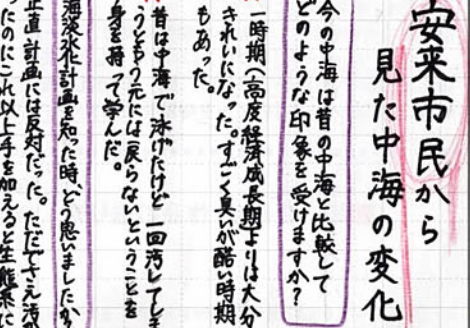 安来市民から
見た中海の変化
今の中海は昔の中海と比較して
どのような印象を受けますか?
一時期(高度経済成長期)よりは大分
きれいになった。すごく臭いが酷い時期
もあった。
昔は中海で泳げたけど一回汚してしま
うともう元には戻らないということを
身を持って学んだ。
海淡水化計画を知った時、どう思いましたか?
正直計画には反対だった。ただでさえ汚
ったのにこれ以上手を加えると生態系に